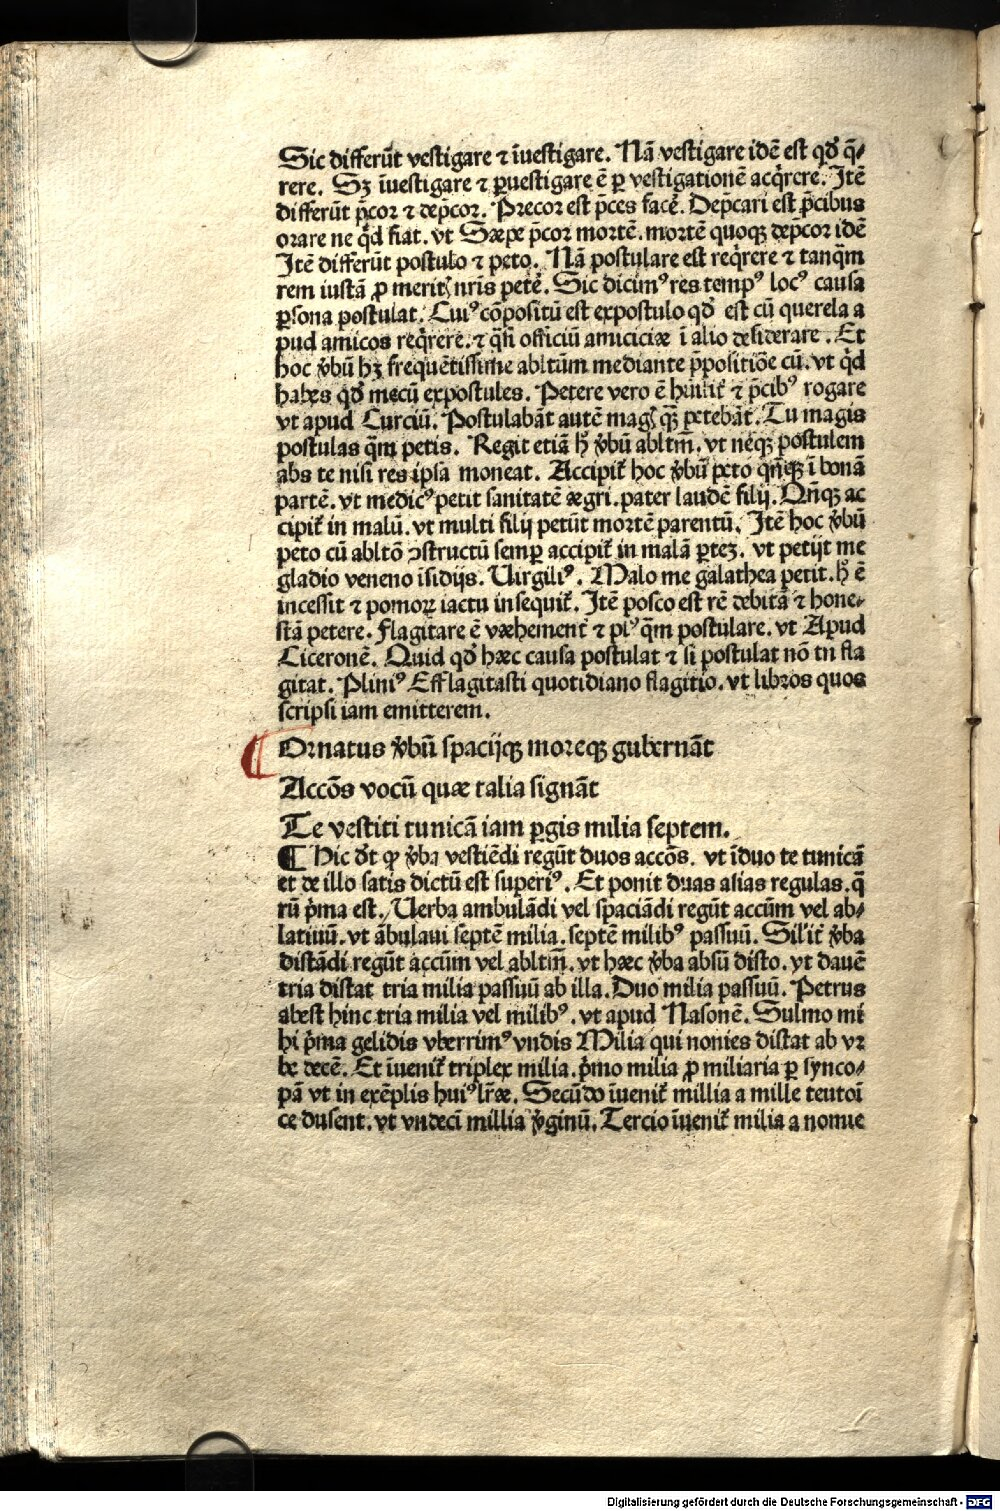 Sic differūt vestigare ⁊ īuestigare. Nā vestigare idē est qđ q̄-
rere. Sꝫ īuestigare ⁊ ꝑuestigare ē ꝑ vestigationē acq̇rere. Itē
differūt p̄cor ⁊ dep̄cor. Precor est p̄ces facē. Dep̄cari est p̄cibus
orare ne q̇d fiat. vt Sæpe p̄cor mortē. mortē quoqꝫ dep̄cor idē
Itē differūt postulo ⁊ peto. Nā postulare est req̇rere ⁊ tanq̄m
rem iustā ꝓ meritꝭ nr̄is petē. Sic dicimꝰ res tempꝰ locꝰ causa
ꝑsona postulat. Cuiꝰ cōpositū est expostulo qđ est cū querela a
pud amicos req̇rere. ⁊ q̄si officiū amiciciæ ī alio desiderare. Et
hoc v̄bū hꝫ frequētissime abltūm mediante p̄positiōe cū. vt q̇d
habes qđ mecū expostules. Petere vero ē huilit̄ ⁊ p̄cibꝰ rogare
vt apud Curciū. Postulabāt autē magꝭ qꝫ petebāt. Tu magis
postulas q̄m petis. Regit etiā h̄ v̄bū abltm̄. vt neqꝫ postulem
abs te nisi res ipsa moneat. Accipit̄ hoc v̄bū peto qn̄qꝫ ī bonā
partē. vt medicꝰ petit sanitatē ægri. pater laudē filij. Qn̄qꝫ ac
cipit̄ in malū. vt multi filij petūt mortē parentū. Itē hoc v̄bū
peto cū abltō ↄstructū semꝑ accipit̄ in malā ꝑteꝫ. vt petijt me
gladio veneno īsidijs. Uirgiliꝰ. Malo me galathea petit. h̄ ē
incessit ⁊ pomoꝝ iactu insequit̄. Itē posco est rē debitā ⁊ hone-
stā petere. Flagitare ē væhement̄ ⁊ plꝰ q̄m postulare. vt Apud
Ciceronē. Quid qđ hæc causa postulat ⁊ si postulat nō tn̄ fla
gitat. Pliniꝰ Efflagitasti quotidiano flagitio. vt libros quos
scripsi iam emitterem.
Ornatus v̄bū spacijqꝫ moreqꝫ gubernāt
Accōs vocū quæ talia signāt
Te vestiti tunicā iam ꝑgis milia septem.
¶ Hic dt̄ ꝙ v̄ba vestiēdi regūt duos accōs. vt īduo te tunicā
et de illo satis dictū est superiꝰ. Et ponit duas alias regulas. q̄
rū p̄ma est. Uerba ambulādi vel spaciādi regūt accūm vel ab-
latiuū. vt ābulaui septē milia. septē milibꝰ passuū. Sil'it̄ v̄ba
distādi regūt accūm vel abltm̄. vt hæc v̄ba absū disto. vt dauē
tria distat tria milia passuū ab illa. Duo milia passuū. Petrus
abest hinc tria milia vel milibꝰ. vt apud Nasonē. Sulmo mi
hi p̄ma gelidis vberrimꝰ vndis Milia qui nonies distat ab vr
be decē. Et īuenit̄ triplex milia. p̄mo milia ꝓ miliaria ꝑ synco-
pā vt in exēplis huiꝰ lr̄æ. Secūdo īuenit̄ millia a mille teutoī
ce dusent. vt vndecī millia v̄ginū. Tercio īuenit̄ milia a nomīe
Digitalisierung gefördert durch die Deutsche Forschungsgemeinschaft - DFG